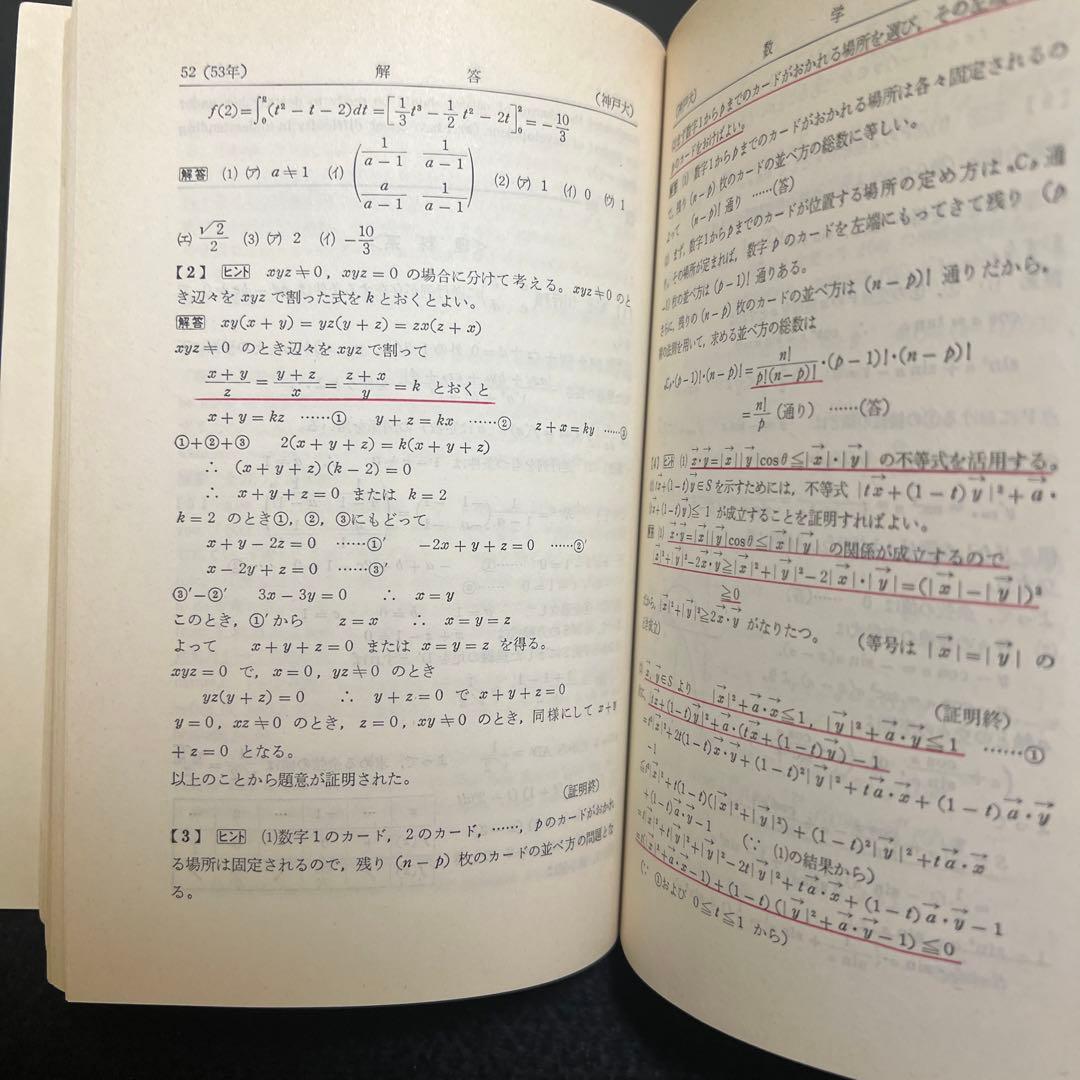 52 (53年) 解 答 (神戸大)
f(2)=∫₀²(t²－t－2)dt=[1/3 t³－1/2 t²－2t]₀²=－10/3
解答 (1) (ア) a≠1 (イ) (1/(a－1) 1/(a－1) a/(a－1) 1/(a－1)) (2) (ア) 1 (イ) 0 (ウ) 1
(エ) √2/2 (3) (ア) 2 (イ) －10/3
【2】 ヒント xyz≠0, xyz=0 の場合に分けて考える。xyz≠0 のと
き辺々を xyz で割った式を k とおくとよい。
解答 xy(x+y)=yz(y+z)=zx(z+x)
xyz≠0 のとき辺々を xyz で割って
(x+y)/z=(y+z)/x=(z+x)/y=k とおくと
x+y=kz ……① y+z=kx ……② z+x=ky ……③
①+②+③ 2(x+y+z)=k(x+y+z)
∴ (x+y+z)(k－2)=0
∴ x+y+z=0 または k=2
k=2 のとき①, ②, ③にもどって
x+y－2z=0 ……①′ －2x+y+z=0 ……②′
x－2y+z=0 ……③′
③′－②′ 3x－3y=0 ∴ x=y
このとき, ①′から z=x ∴ x=y=z
よって x+y+z=0 または x=y=z を得る。
xyz=0 で, x=0, yz≠0 のとき
yz(y+z)=0 ∴ y+z=0 で x+y+z=0
y=0, xz≠0 のとき, z=0, xy≠0 のとき, 同様にして x+y
+z=0 となる。
以上のことから題意が証明された。
(証明終)
【3】 ヒント (1)数字1のカード, 2のカード, ……, pのカードがおかれ
る場所は固定されるので, 残り (n－p) 枚のカードの並べ方の問題とな
る。
数 学
(神戸大)
数字1からpまでのカードがおかれる場所を選び, その左端に
のカードをおけばよい。
解答 (1) 数字1からpまでのカードがおかれる場所は各々固定されるの
で, 残り (n－p) 枚のカードの並べ方の総数に等しい。
よって (n－p)! 通り ……(答)
まず, 数字1からpまでのカードが位置する場所の定め方は ₙCₚ 通
その場所が定まれば, 数字 p のカードを左端にもってきて残り (p
－1) 枚の並べ方は (p－1)! 通りある。
さらに, 残りの (n－p) 枚のカードの並べ方は (n－p)! 通りだから,
の法則を用いて, 求める並べ方の総数は
ₙCₚ·(p－1)!·(n－p)!=n!/(p!(n－p)!)·(p－1)!·(n－p)!
=n!/p (通り) ……(答)
【4】 ヒント (1) x⃗·y⃗=|x⃗||y⃗|cosθ≦|x⃗|·|y⃗| の不等式を活用する。
tx⃗+(1－t)y⃗∈S を示すためには, 不等式 |tx⃗+(1－t)y⃗|²+a⃗·
(tx⃗+(1－t)y⃗)≦1 が成立することを証明すればよい。
解答 (1) x⃗·y⃗=|x⃗||y⃗|cosθ≦|x⃗||y⃗| の関係が成立するので
|x⃗|²+|y⃗|²－2x⃗·y⃗≧|x⃗|²+|y⃗|²－2|x⃗|·|y⃗|=(|x⃗|－|y⃗|)²
≧0
だから, |x⃗|²+|y⃗|²≧2x⃗·y⃗ がなりたつ。 (等号は |x⃗|=|y⃗| の
(証明終)
x⃗, y⃗∈S より |x⃗|²+a⃗·x⃗≦1, |y⃗|²+a⃗·y⃗≦1 ……①
|tx⃗+(1－t)y⃗|²+a⃗·(tx⃗+(1－t)y⃗)－1
=t²|x⃗|²+2t(1－t)x⃗·y⃗+(1－t)²|y⃗|²+ta⃗·x⃗+(1－t)a⃗·y⃗
－1
≦t²|x⃗|²+t(1－t)(|x⃗|²+|y⃗|²)+(1－t)²|y⃗|²+ta⃗·x⃗
+(1－t)a⃗·y⃗－1 (∵ (1)の結果から)
=t|x⃗|²+|y⃗|²－t|y⃗|²+ta⃗·x⃗+(1－t)a⃗·y⃗－1
=t(|x⃗|²+a⃗·x⃗－1)+(1－t)(|y⃗|²+a⃗·y⃗－1)≦0
(∵ ①および 0≦t≦1 から)